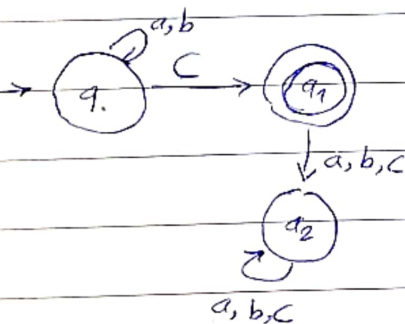 a,b
C
q.
q1
a, b, c
q2
a, b,c